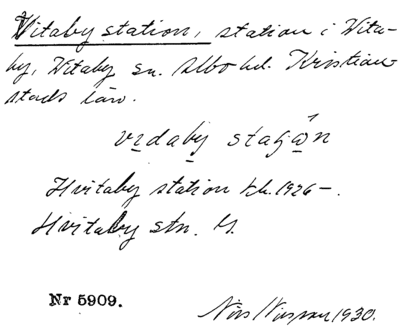 Vitaby station, station i Vita-
by, Vitaby sn. Albo hd. Kristian-
stads län.
vɪdaby
Hvitaby station tk. 1926–.
Hvitaby stn. G.
Nr 5909.
Nils Nilsson 1930.